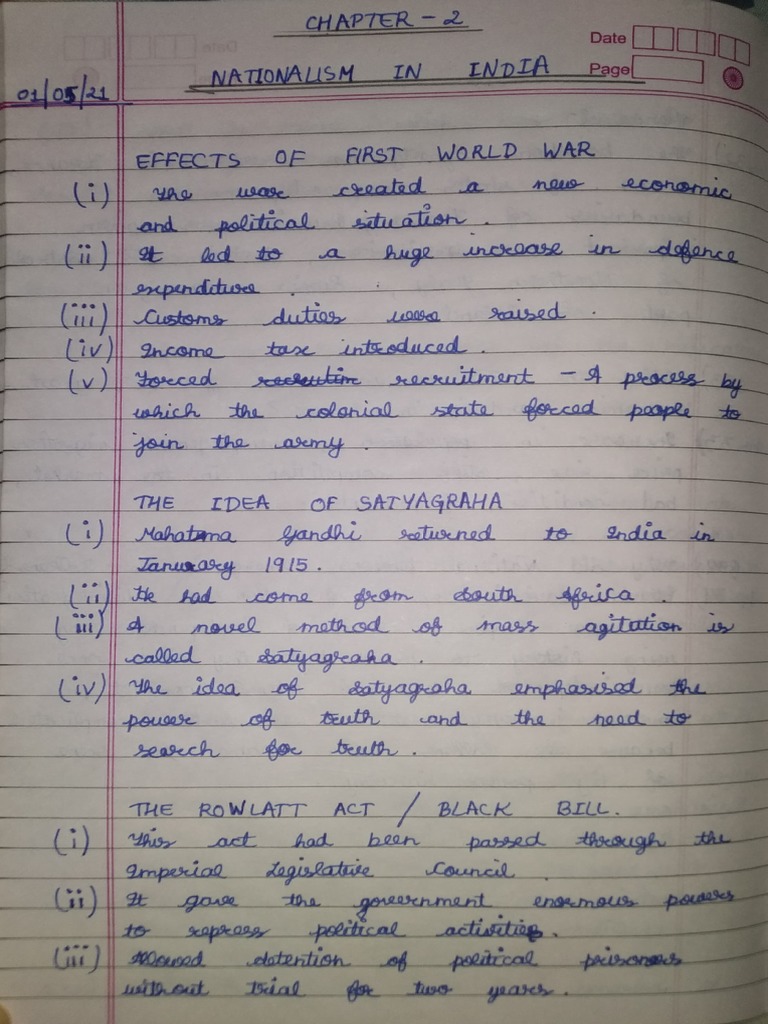 CHAPTER - 2
Date
NATIONALISM IN INDIA
Page
01/05/21
EFFECTS OF FIRST WORLD WAR
(i) The war created a new economic
and political situation.
(ii) It led to a huge increase in defence
expenditure.
(iii) Customs duties were raised.
(iv) Income tax introduced.
(v) Forced recrutim recruitment - A process by
which the colonial state forced people to
join the army.
THE IDEA OF SATYAGRAHA
(i) Mahatma Gandhi returned to India in
Janurary 1915.
(ii) He had come from South Africa.
(iii) A novel method of mass agitation is
called Satyagraha.
(iv) The idea of Satyagraha emphasised the
power of truth and the need to
search for truth.
THE ROWLATT ACT / BLACK BILL.
(i) This act had been passed through the
Imperial Legislative Council.
(ii) It gave the goverernment enormous powers
to repress political activities.
(iii) Allowed detention of political prisoners
without trial for two years.